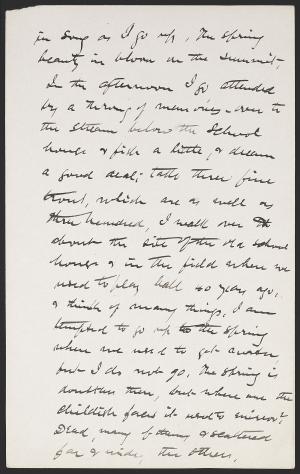 in song as I go up, the spring
beauty in bloom on the summit.
In the afternoon I go attended
by a throng of memories over to
the stream below the School
house & fish a little, & dream
a good deal; take three fine
trout, which are as well as
three hundred, I walk over th
about the site of the old school
house & in the field where we
used to play ball 40 years ago,
& think of many things. I am
tempted to go up to the spring
where we used to get water
but I do not go. The spring is
doubtless there, but where are the
childish faces it used to mirror?
Dead, many of them, & scattered
far & wide, the others.